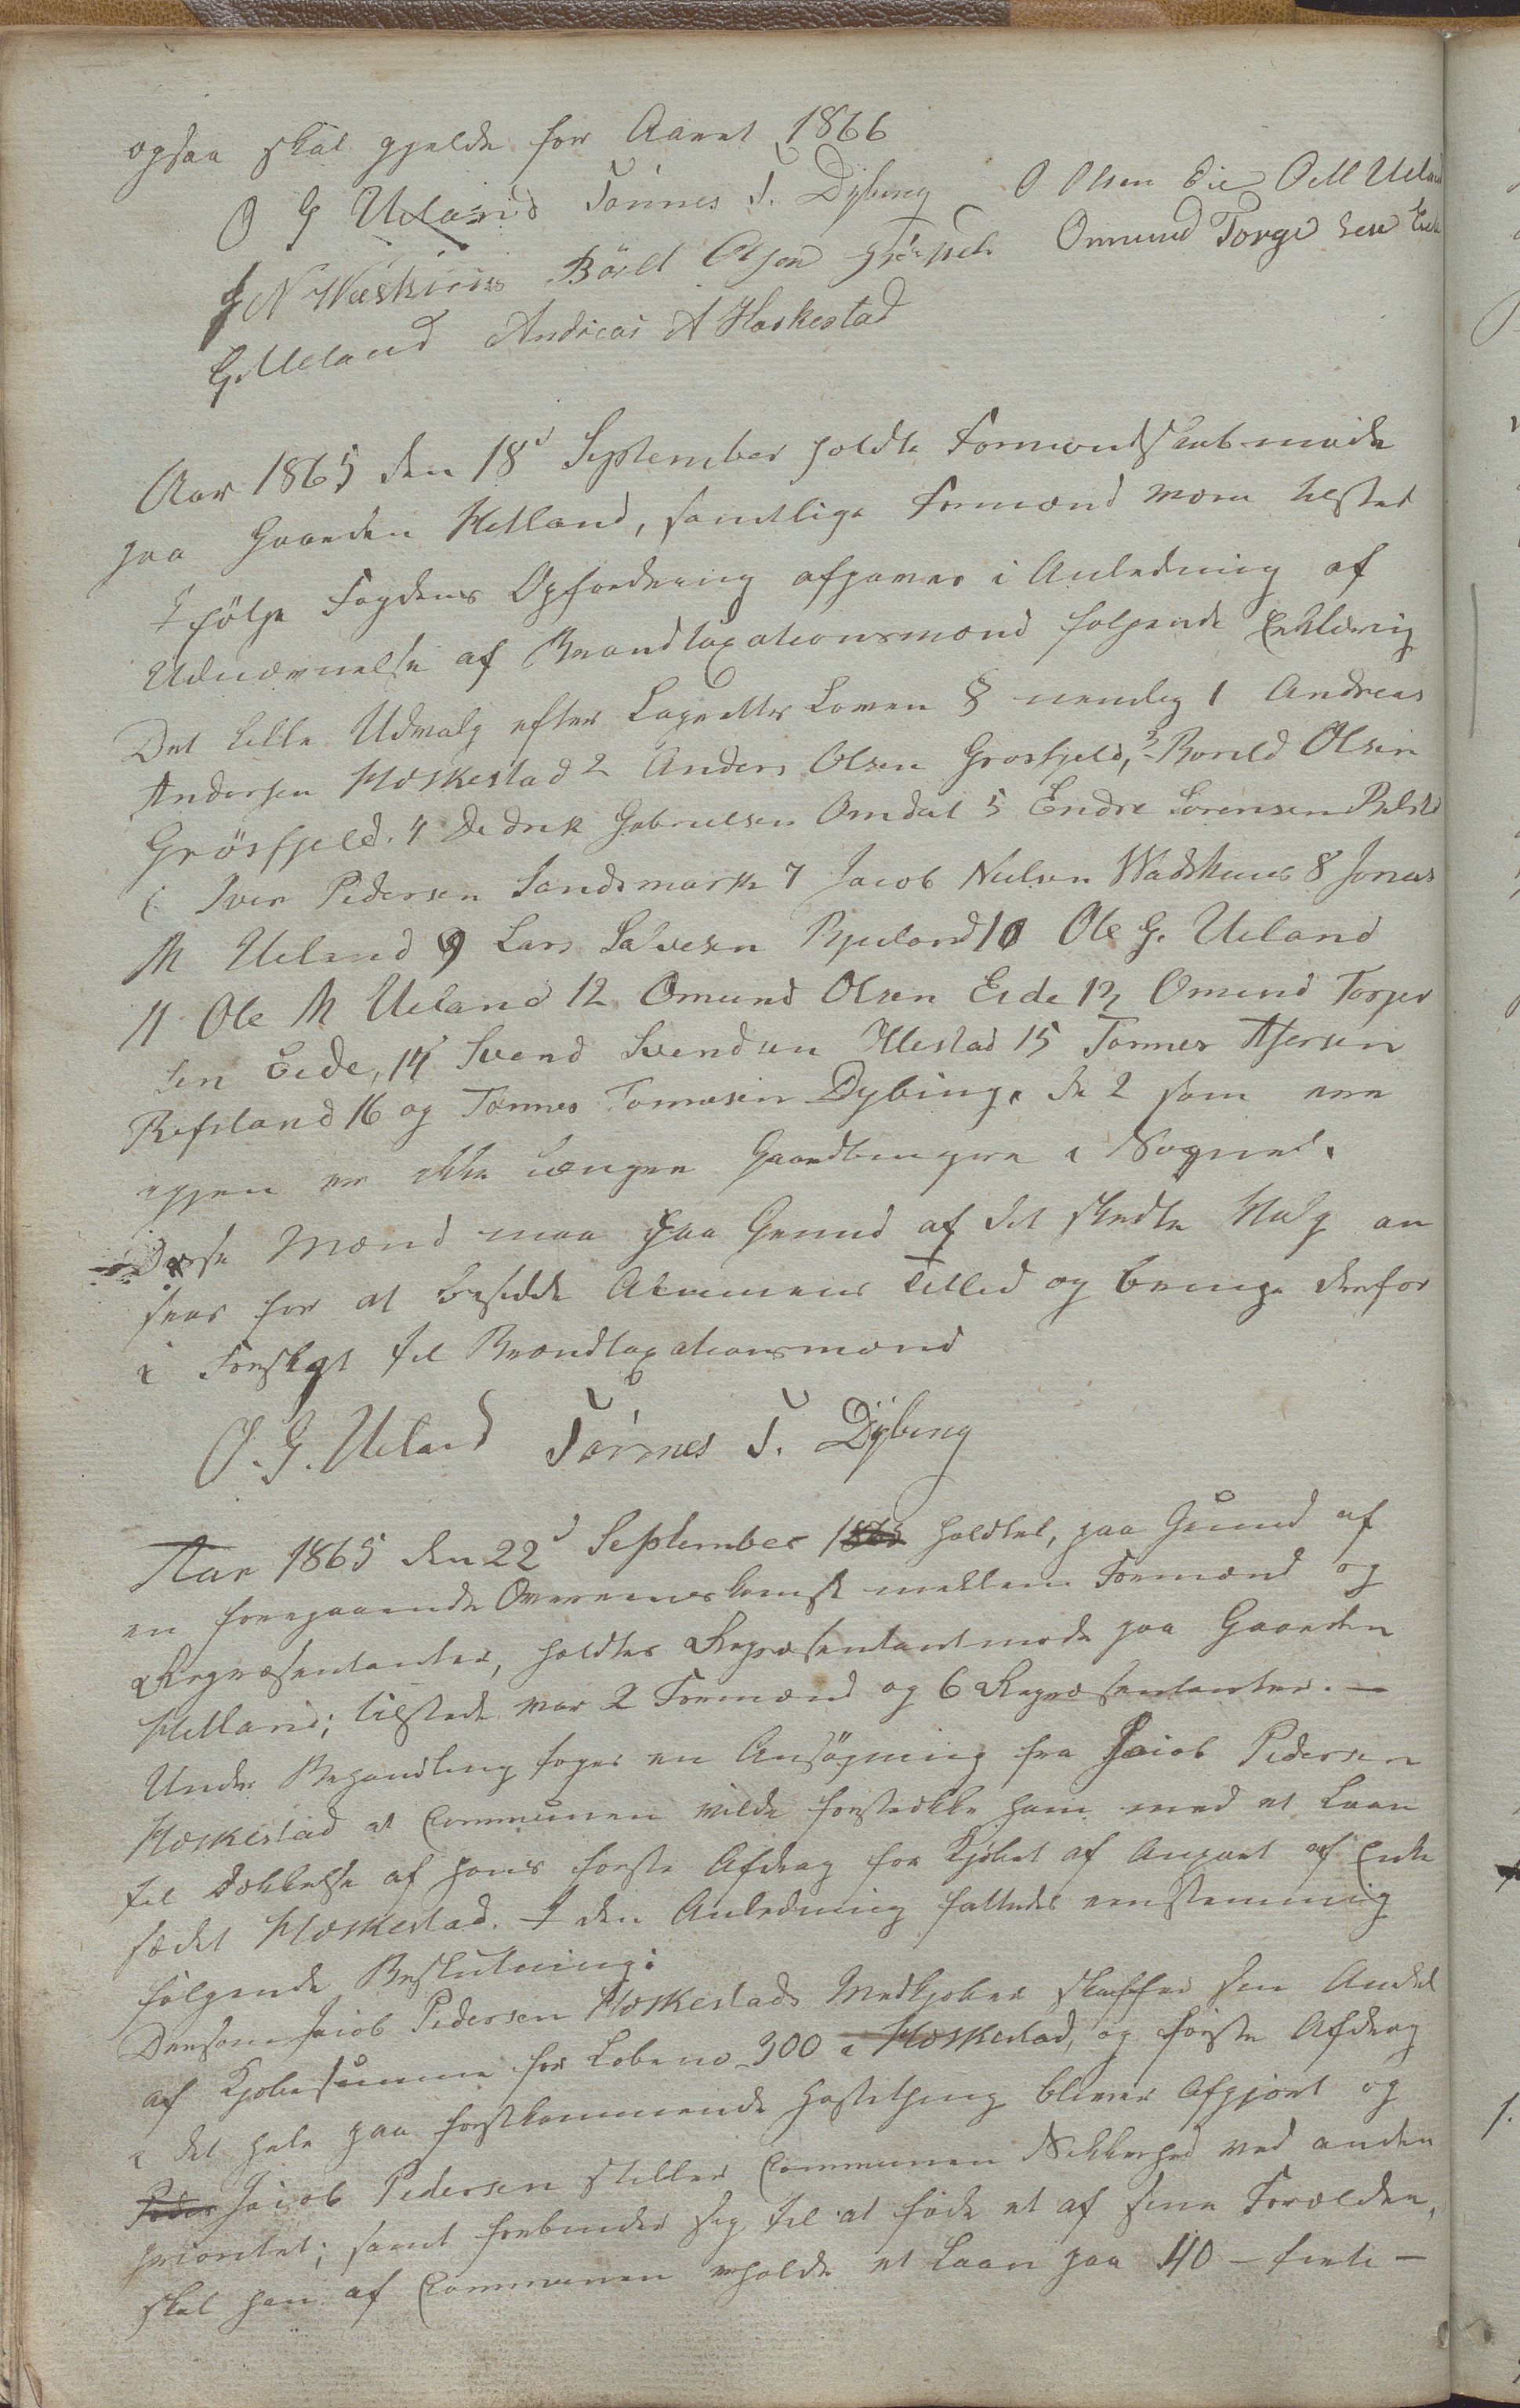 ogsaa skal gjelde for Aaret 1866
O G Ueland Tönnes T. Dybing O Olsen Eie O M Ueland
J N Wadshuus Börild Olsen Gröspeli Ommund Torge sen Eide
G. Ueland Andreas A Haskestad
Aar 1865 den 18d September holdte Formandskabsmöde
paa Gaarden Hetland, samtlige Formænd vare tilsted
Ifölge Fogdens Opfordring afgaves i Anledning af
Udnævnelse af Brandtaxationsmænd folgende Erklæring
Det lille Udvalg efter Lagretts Loven § nemlig 1 Andreas
Andersen Haskestad 2 Anders Olsen Grosfjeld, 3 Borild Olsen
Grösfjeld. 4 Dedrik Gabrielsen Omdal 5 Endre Sorensen
6 Iver Pedersen Sandsmark 7 Jacob Nielsen Wadshuus 8 Jonas
M Ueland 9 Lars Salvesen Bjuland 10 Ole G. Ueland
11 Ole M Ueland 12 Omund Olsen Eide 13 Omund Torger
sen Eide, 14 Svend Svendsen Ilestad 15 Tonnes Asersen
Refsland 16 og Tonnes Tonnesen Dybing. De 2 som ere
igjen er ikke længere Gaardbrugere i Sognet.
Disse Mænd maa paa Grund af det skedte Valg an
sees for at besidde Almeens Tillid og bringes derfor
i Forslagt til Brandtaxationsmænd
O. G. Ueland Tönnes T. Dybing
Aar 1865 den 22d September 1865 holdtes, paa Grund af
en foregaaende Overeenskomst mellem Formænd og
Repræsentanter, holdtes Repræsentantmöde paa Gaarden
Hetland; tilstede var 2 Formænd og 6 Repræsentanter. —
Under Behandling toges en Ansögning fra Jacob Pedersen
Haskestad at Communen vilde forstrække ham med et Laan
til Dækkelse af hans förste Afdrag for Kjöbet af Anpart af Enke
sædet Haskestad. I den Anledning fattedes eenstemmig
fölgende Beslutning:
Dersom Jacob Pedersen Haskestads Medkjöber skaffer sin Andel
af Kjöbesumme for Lobeno 300 a Haskestad, og förste Afdrag
i det hele paa forstkommende Hösteting bliver Afgjört og
Peder Jacob Pedersen stiller Communen Sikkerhed ved anden
Prioritet; samt forbinder sig til at föde et af sine Forældre,
skal han af Communen erholde et Laan paa 40 — firti —